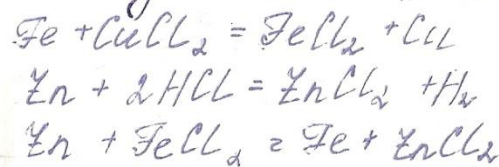 Fe + CuCl₂ = FeCl₂ + Cu
Zn + 2HCl = ZnCl₂ + H₂
Zn + FeCl₂ = Fe + ZnCl₂